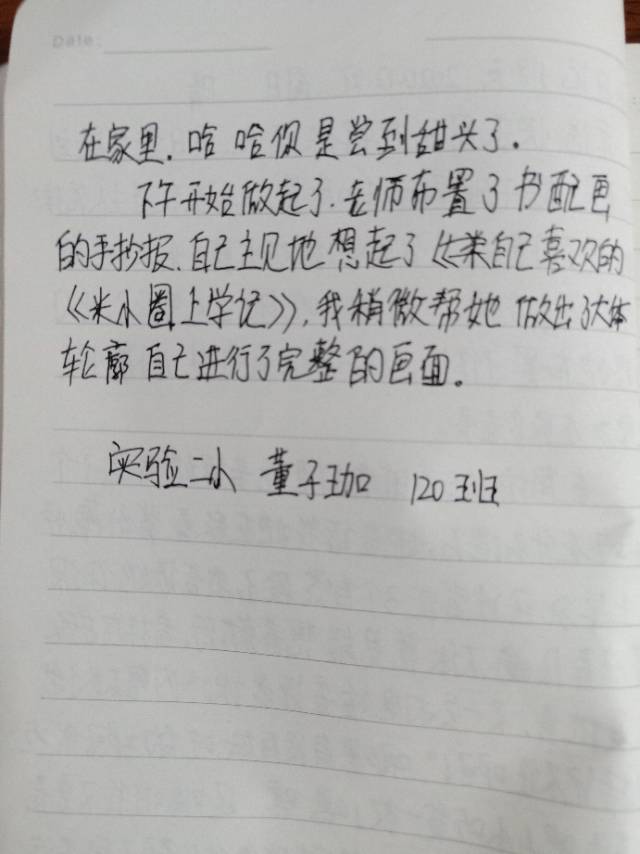 Date:
在家里.哈哈你是尝到甜头了.
下午开始做起了.老师布置了书配画
的手抄报.自己主见地想起了《米自己喜欢的
《米小圈上学记》,我稍微帮她做出了大体
轮廓自己进行了完整的画面。
实验二小 董子珈 120班